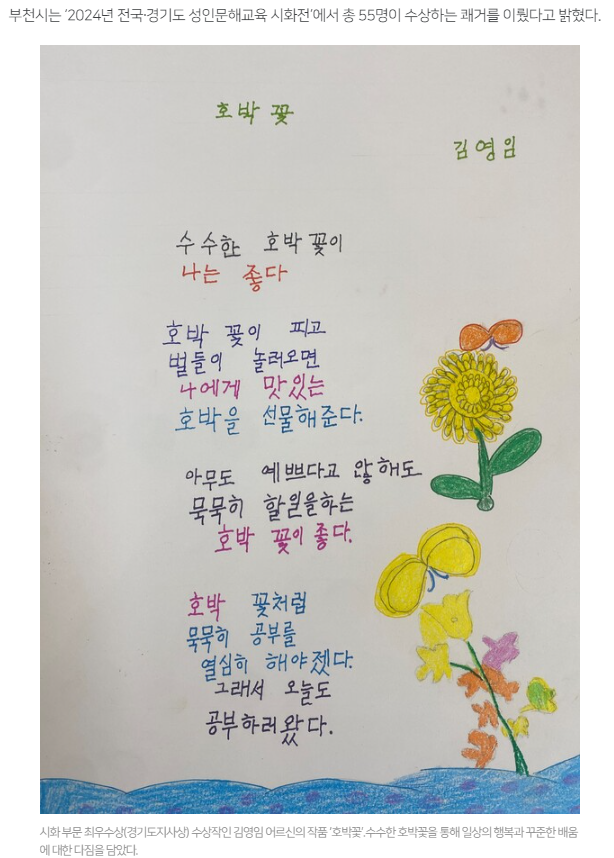 부천시는 ‘2024년 전국·경기도 성인문해교육 시화전’에서 총 55명이 수상하는 쾌거를 이뤘다고 밝혔다.
호박 꽃
김영임
수수한 호박 꽃이
나는 좋다
호박 꽃이 피고
벌들이 놀러오면
나에게 맛있는
호박을 선물해준다.
아무도 예쁘다고 않해도
묵묵히 할일을하는
호박 꽃이좋다.
호박 꽃처럼
묵묵히 공부를
열심히 해야겠다.
그래서 오늘도
공부하러왔다.
시화 부문 최우수상(경기도지사상) 수상작인 김영임 어르신의 작품 '호박꽃'.수수한 호박꽃을 통해 일상의 행복과 꾸준한 배움
에 대한 다짐을 담았다.